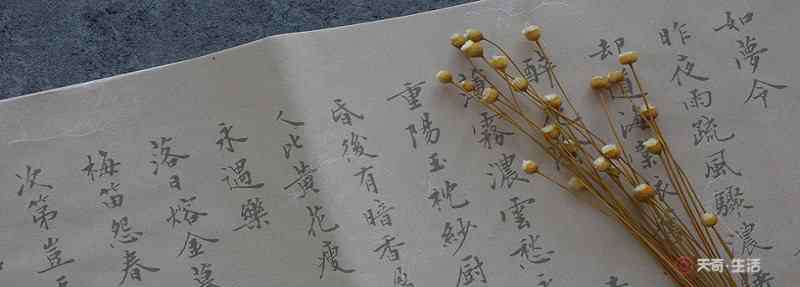 如夢令
昨夜雨疏風驟濃
却道海棠依
醉
薄霧濃雲愁
重陽玉枕紗厨
昏後有暗香
人比黃花瘦
永遇樂
落日熔金
梅笛怨春
次第豈
天奇·生活